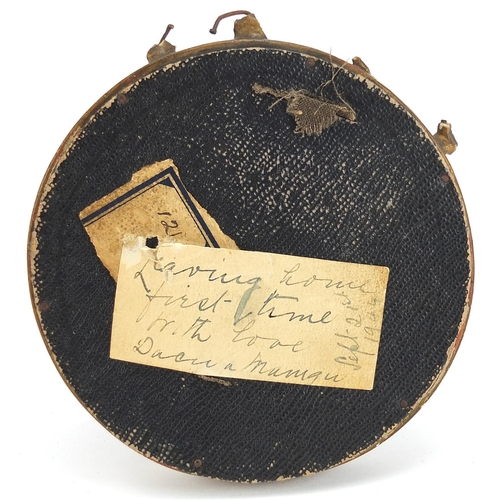 121
Leaving home
first time
With love
Dacu a Mamgu
Sept 21st